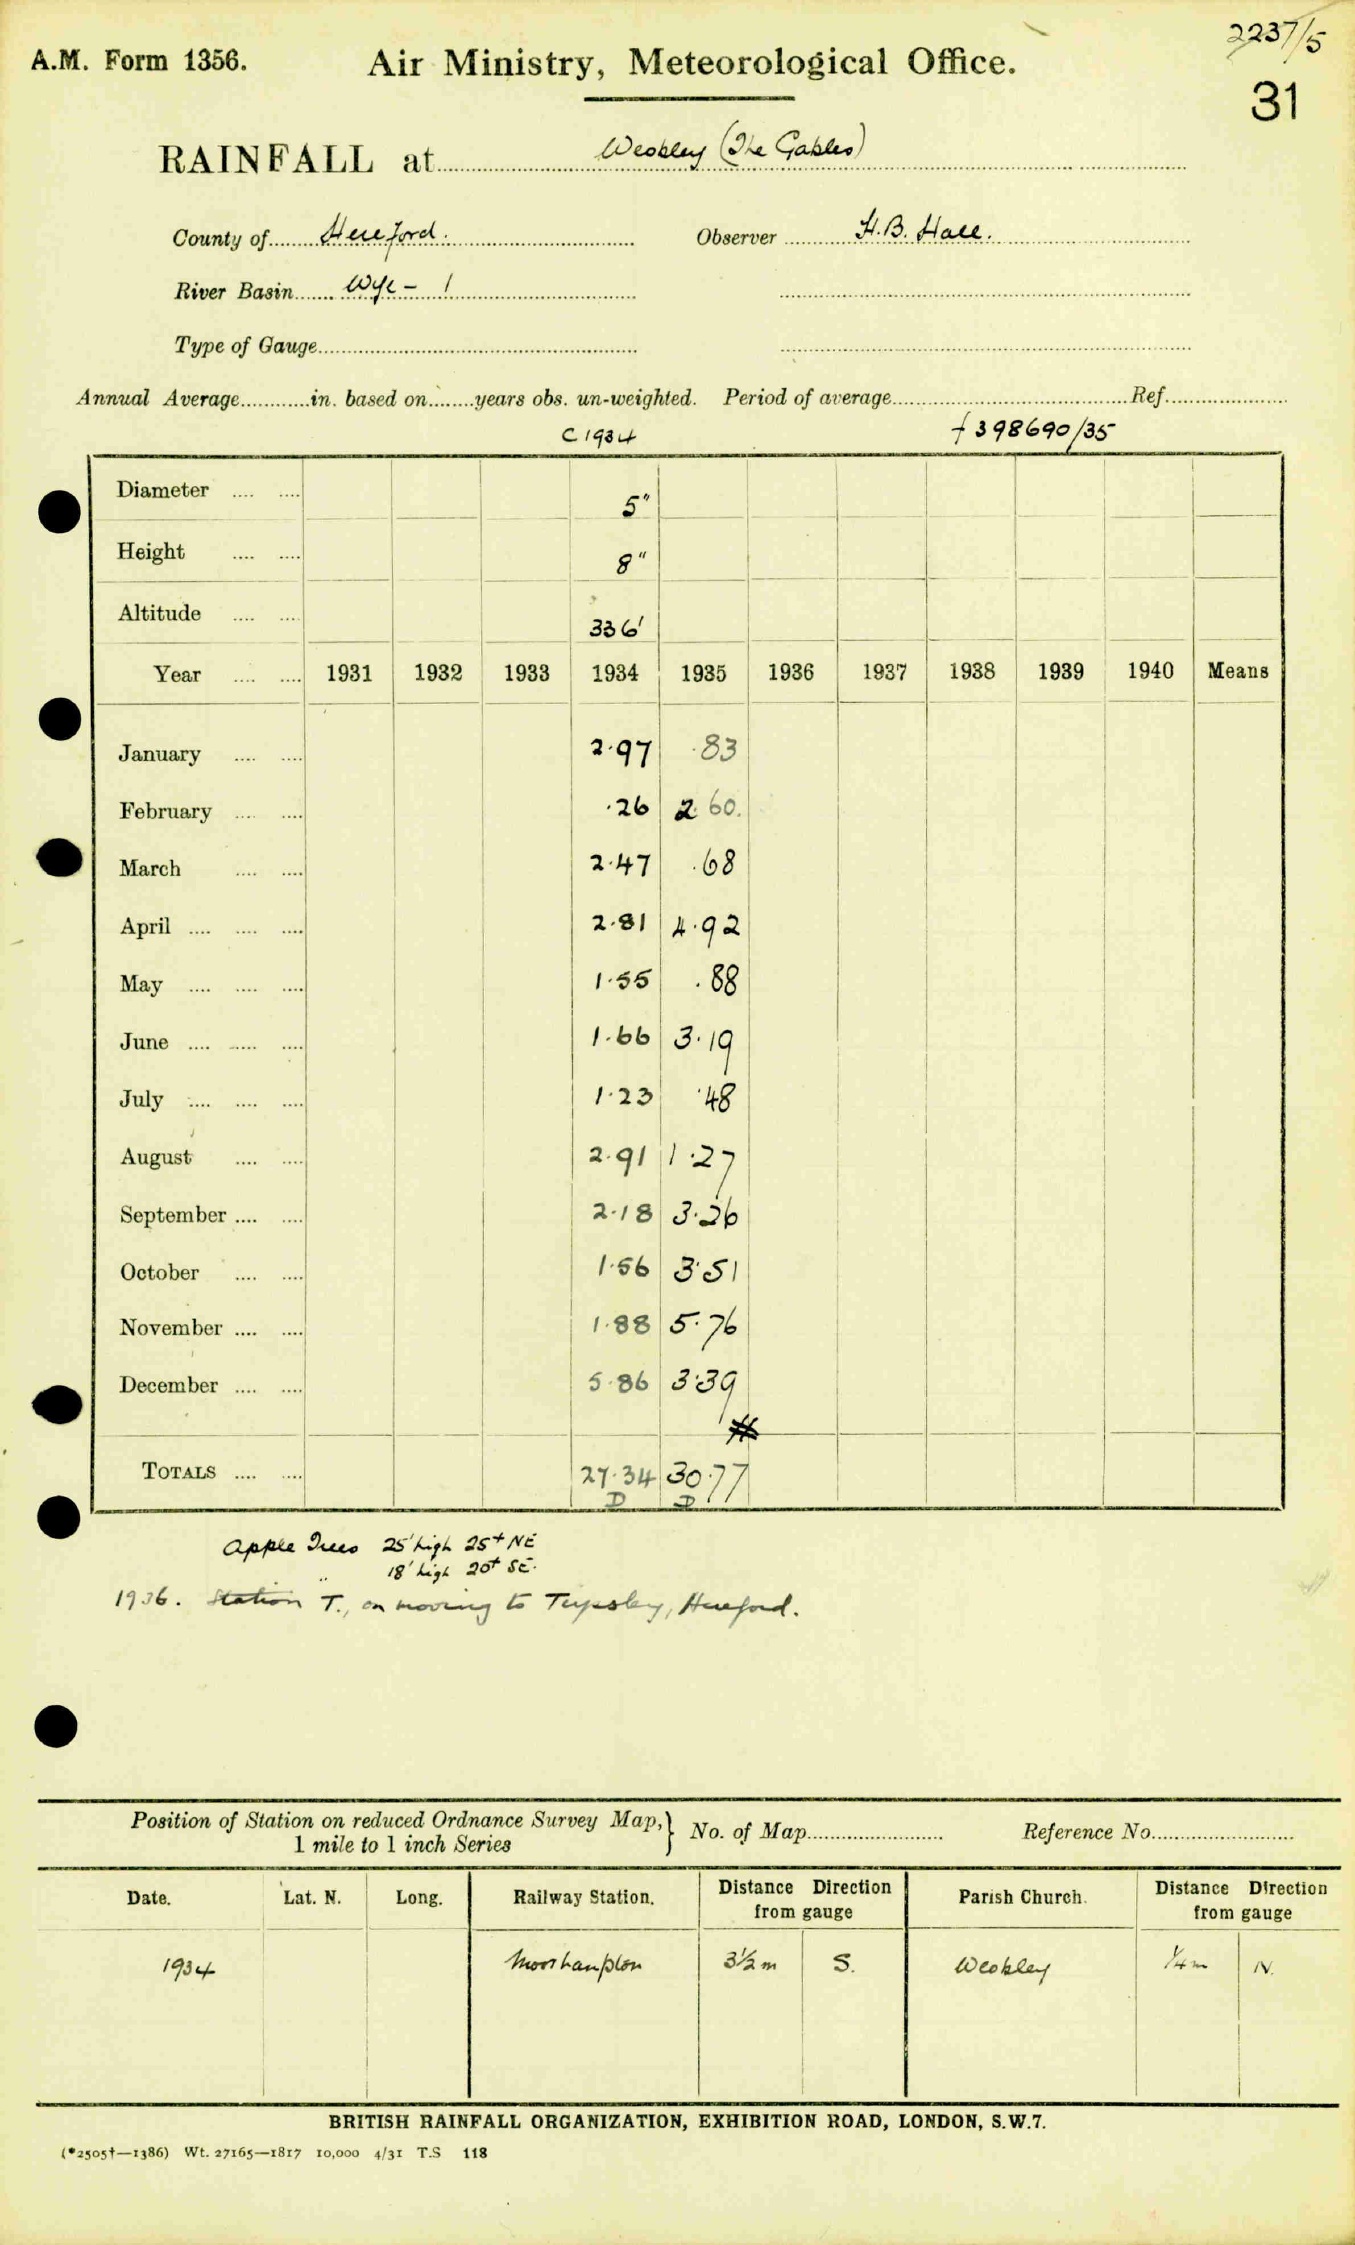 2237/5
A.M. Form 1356. Air Ministry, Meteorological Office.
31
RAINFALL at Weobley (The Gables)
County of Hereford. Observer H.B. Hall.
River Basin Wye - 1
Type of Gauge
Annual Average in. based on years obs. un-weighted. Period of average Ref.
C 1934 398690/35
Diameter 5"
Height 8"
Altitude 336'
Year 1931 1932 1933 1934 1935 1936 1937 1938 1939 1940 Means
January 2.97 .83
February .26 2.60
March 2.47 .68
April 2.81 4.92
May 1.55 .88
June 1.66 3.19
July 1.23 .48
August 2.91 1.27
September 2.18 3.26
October 1.56 3.51
November 1.88 5.76
December 5.86 3.39
TOTALS 27.34 30.77
D D
Apple Trees 25' high 25+ NE
" 18' high 20+ SE.
1936. Station T., on moving to Tupsley, Hereford.
Position of Station on reduced Ordnance Survey Map, 1 mile to 1 inch Series } No. of Map Reference No.
Date. Lat. N. Long. Railway Station. Distance Direction from gauge Parish Church. Distance Direction from gauge
1934 Moorhampton 3½ m S. Weobley ¼ m N.
BRITISH RAINFALL ORGANIZATION, EXHIBITION ROAD, LONDON, S.W.7.
(*2505†—1386) Wt. 27165—1817 10,000 4/31 T.S 118